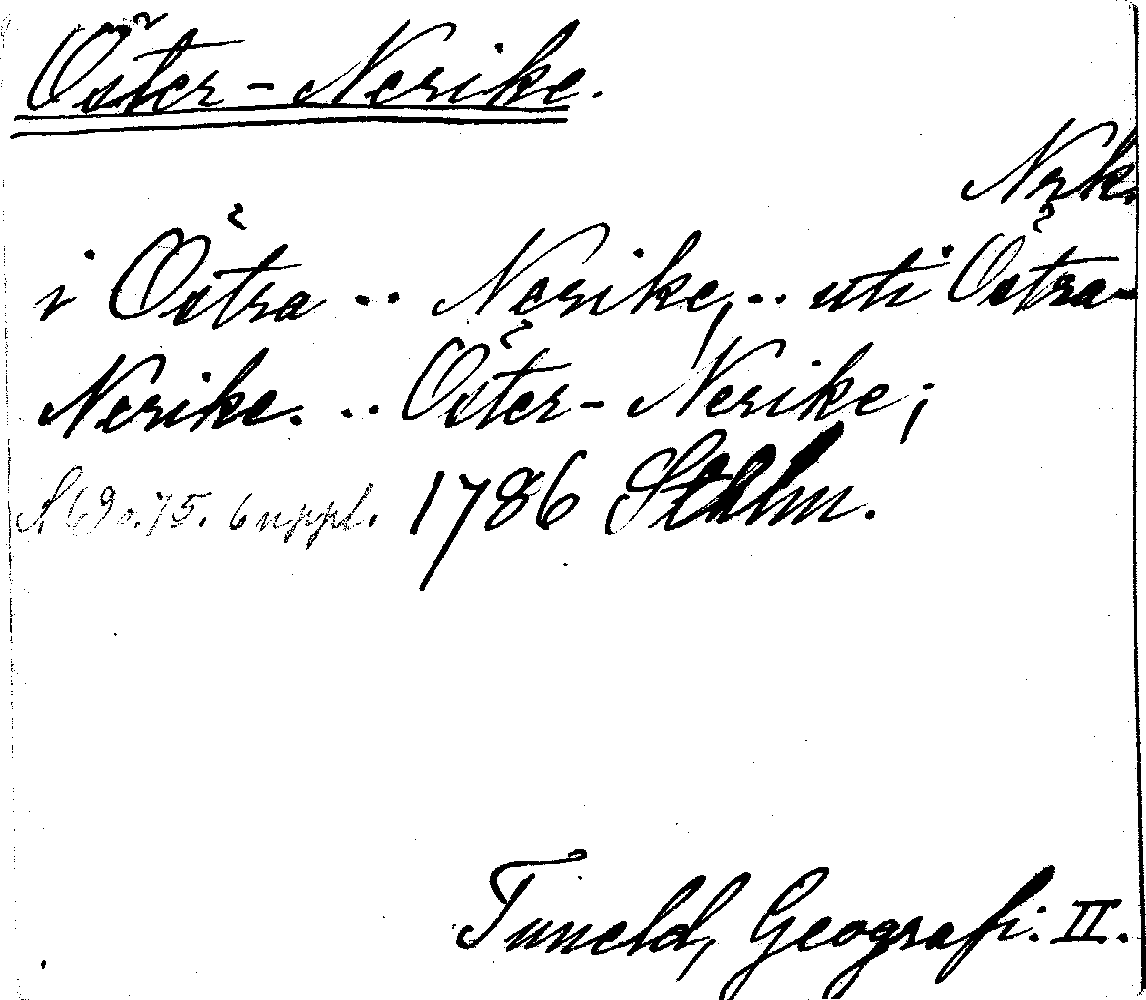 Öster-Nerike.
Nrk.
i Östra .. Nerike, .. uti Östra-
Nerike. .. Öster-Nerike;
S 69 o. 75. 6 uppl. 1786 Sthlm.
Tuneld, Geografi. II.